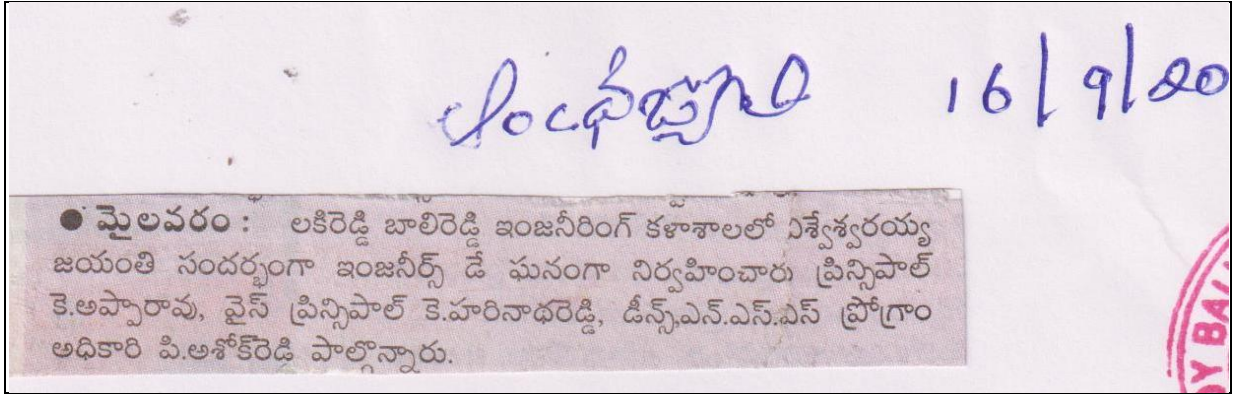 ఆంధ్రజ్యోతి 16/9/20
● మైలవరం : లకిరెడ్డి బాలిరెడ్డి ఇంజనీరింగ్ కళాశాలలో విశ్వేశ్వరయ్య
జయంతి సందర్భంగా ఇంజనీర్స్ డే ఘనంగా నిర్వహించారు ప్రిన్సిపాల్
కె.అప్పారావు, వైస్ ప్రిన్సిపాల్ కె.హరినాథరెడ్డి, డీన్స్,ఎన్.ఎస్.ఎస్ ప్రోగ్రాం
అధికారి పి.అశోక్‌రెడ్డి పాల్గొన్నారు.
DY BAL